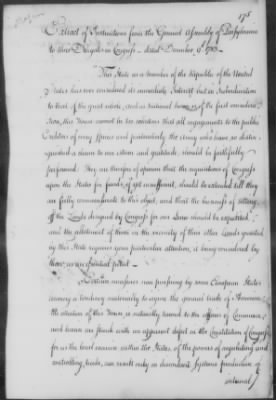 175
Extract of Instructions from the General Assembly of Pensylvania
to their Delegates in Congress. dated December 9th 1783.
This State as a Member of the Republic of the United
States has ever considered its immediate Interest but in Subordination
to that of the great whole, and as national honour is of the first considera-
tion, this House cannot be too solicitous that all engagements to the public
Creditors of every Species and particularly the Army who have so distin-
guished a claim to our esteem and gratitude, should be faithfully
performed. They are therefore of opinion that the requisitions of Congress
upon the States for funds, if yet insufficient, should be extended till they
are fully commensurate to this object, and that the business of settling
of the Lands designed by Congress for our Line should be expedited
and the allotment of them in the vicinity of their other Lands granted
by this State requires your particular attention, it being considered by
them as an essential point.
Certain measures now pursuing by some European States
seeming a tendency materially to injure the general trade of America
the attention of this House is naturally turned to the affairs of Commerce,
and hence are struck with an apparent defect in the Constitution of Congress,
for as the local exercise within the States, of the powers of regulating and
controlling trade, can result only in discordant Systems productive of
internal